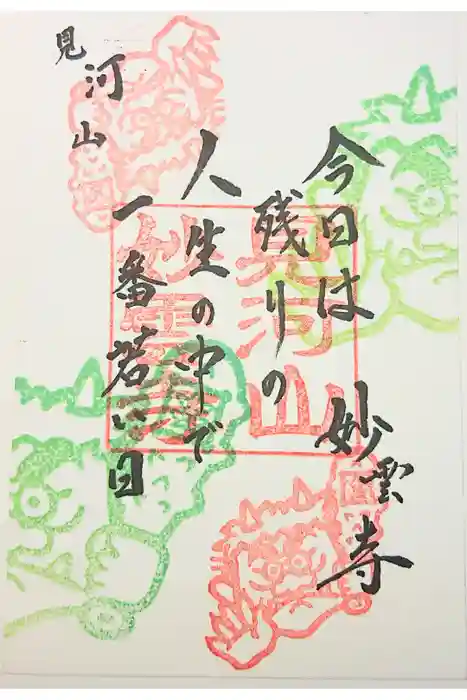 今日は
残りの
人生の中で
一番若い日
妙雲寺
見河山
見河山
妙雲寺